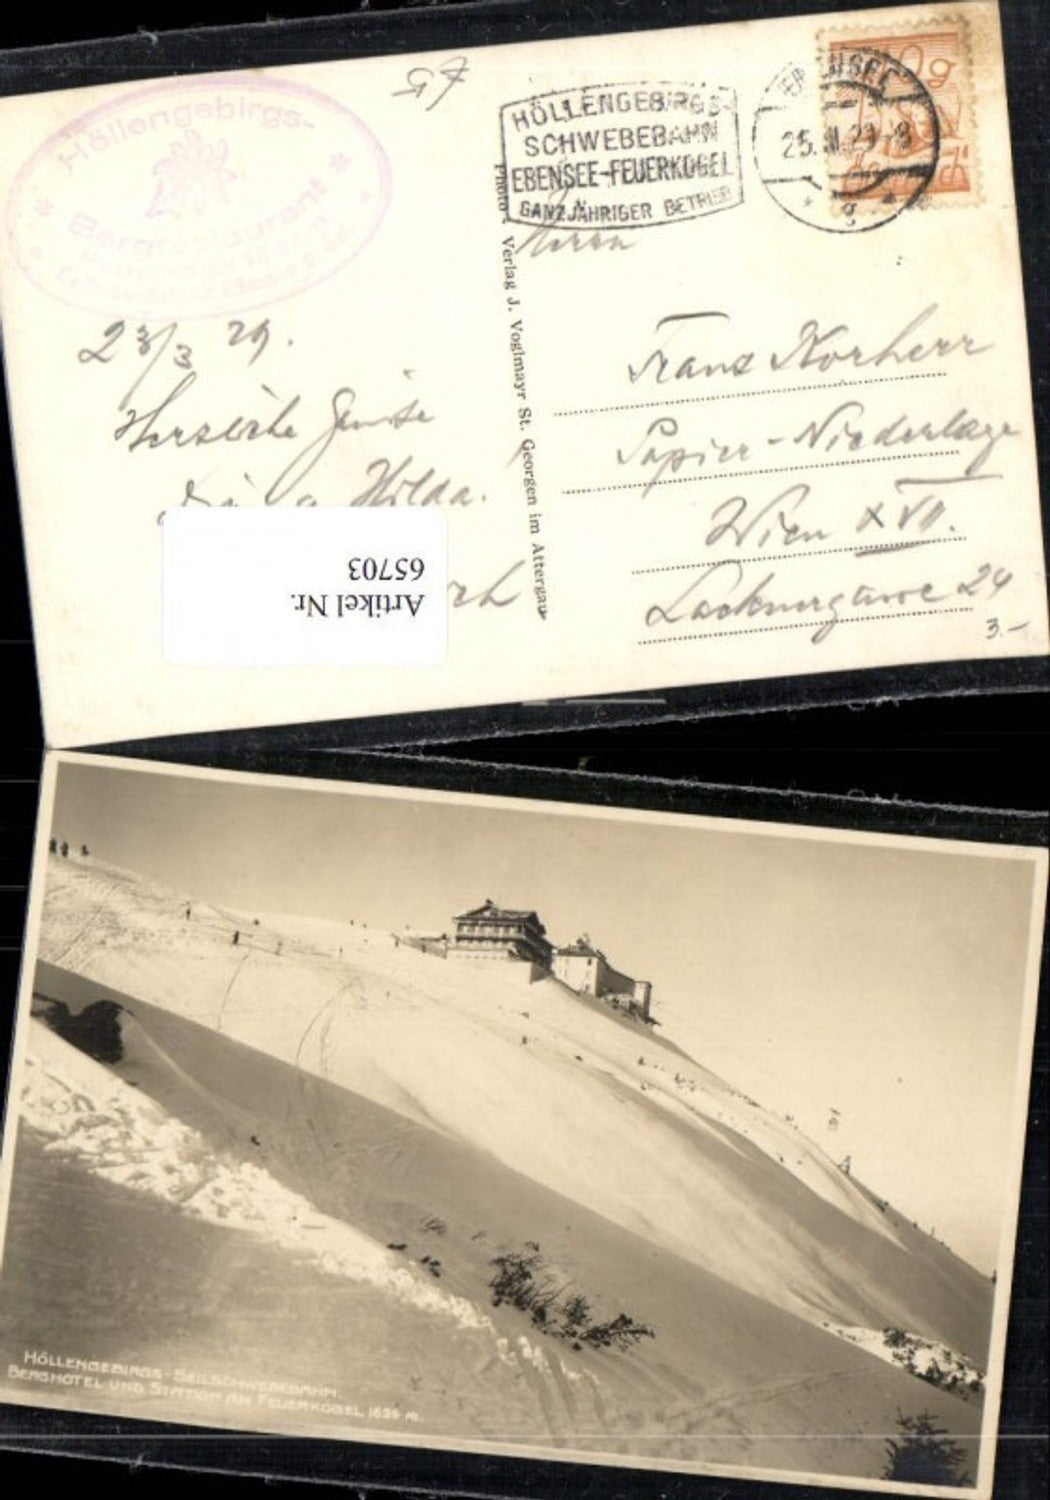 Höllengebirgs-
Bergrestaurant
HÖLLENGEBIRGS-
SCHWEBEBAHN
EBENSEE-FEUERKOGEL
GANZJÄHRIGER BETRIEB
EBENSEE
25. III. 29
10 g
Photo u. Verlag J. Voglmayr St. Georgen im Attergau
23/3 29.
Herzliche Grüße
Hilda.
Herrn
Franz Korherr
Papier-Niederlage
Wien XVII.
Lacknergasse 24
3.-
Artikel Nr.
65703
HÖLLENGEBIRGS-SEILSCHWEBEBAHN.
BERGHOTEL UND STATION AM FEUERKOGEL 1625 m.